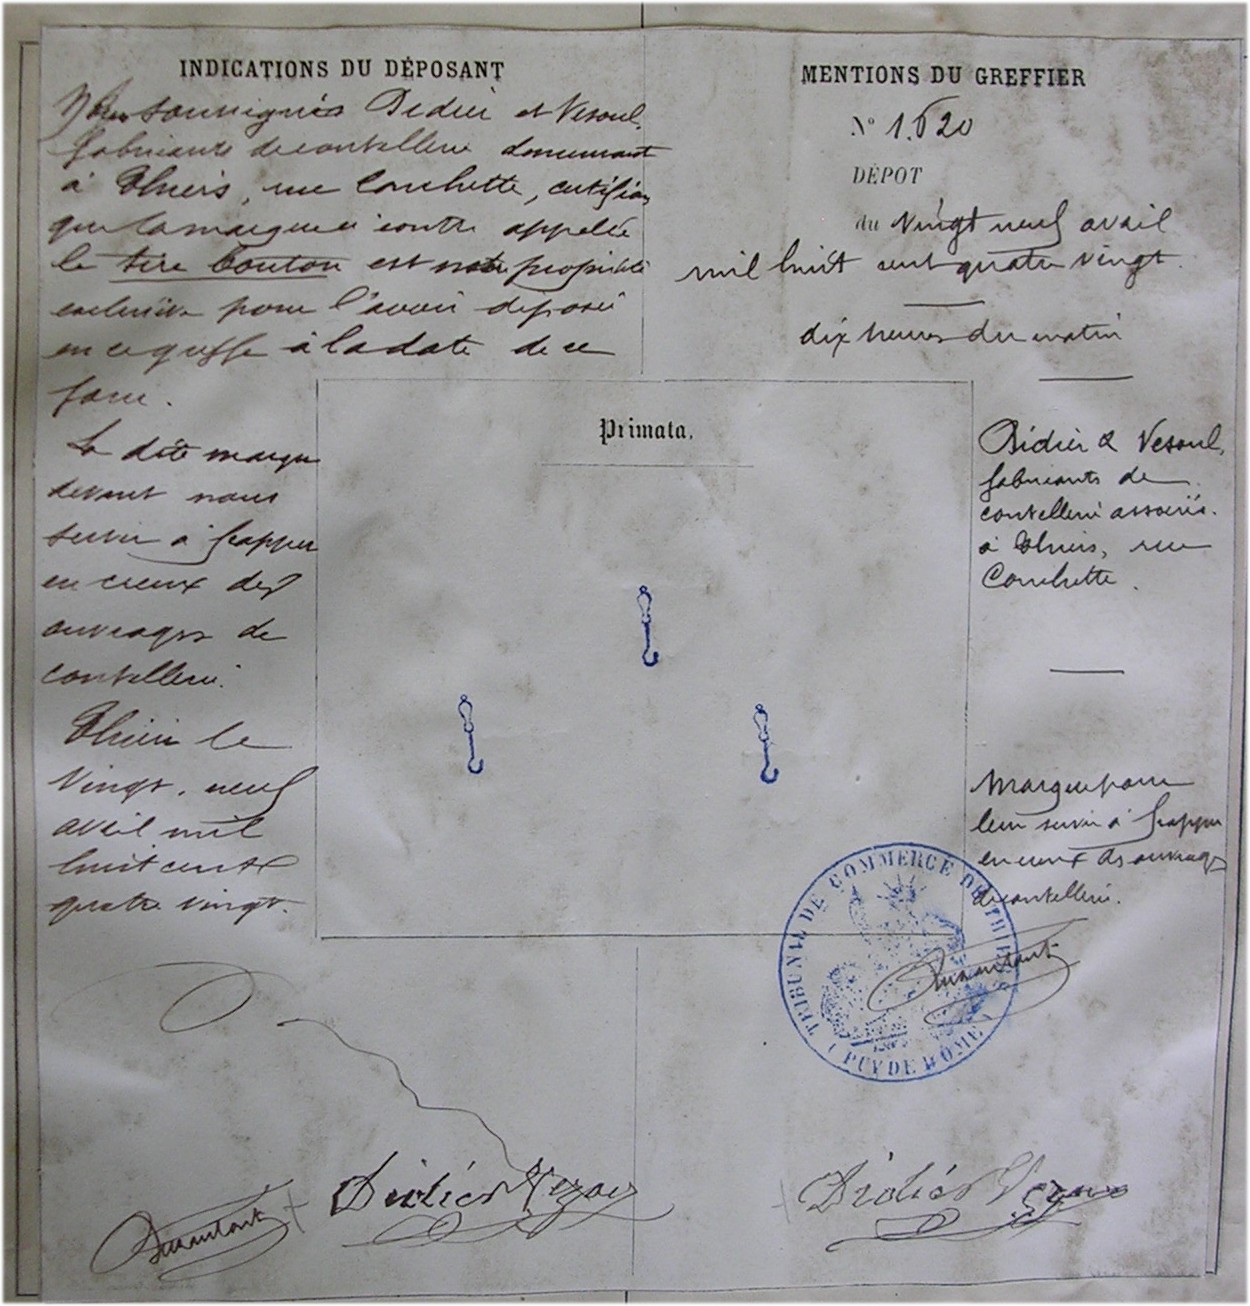 INDICATIONS DU DÉPOSANT
Nous soussignés Didier et Vesoul,
fabricants de coutellerie demeurant
à Thiers, rue Conchette, certifions
que la marque ci contre appelée
le tire bouton est notre propriété
exclusive pour l'avoir déposée
en ce greffe à la date de ce
jour.
La dite marque
devant nous
servir à frapper
en creux des
ouvrages de
coutellerie.
Thiers le
vingt neuf
avril mil
huit cent
quatre vingt.
MENTIONS DU GREFFIER
N° 1.620
DÉPOT
du vingt neuf avril
mil huit cent quatre vingt.
dix heures du matin
Primata.
Didier & Vesoul,
fabricants de
coutellerie associés.
à Thiers, rue
Conchette.
Marque pour
leur servir à frapper
en creux des ouvrages
de coutellerie.
TRIBUNAL DE COMMERCE DE THIERS
(PUY DE DOME)
Didier Vezou
Didier Vezou